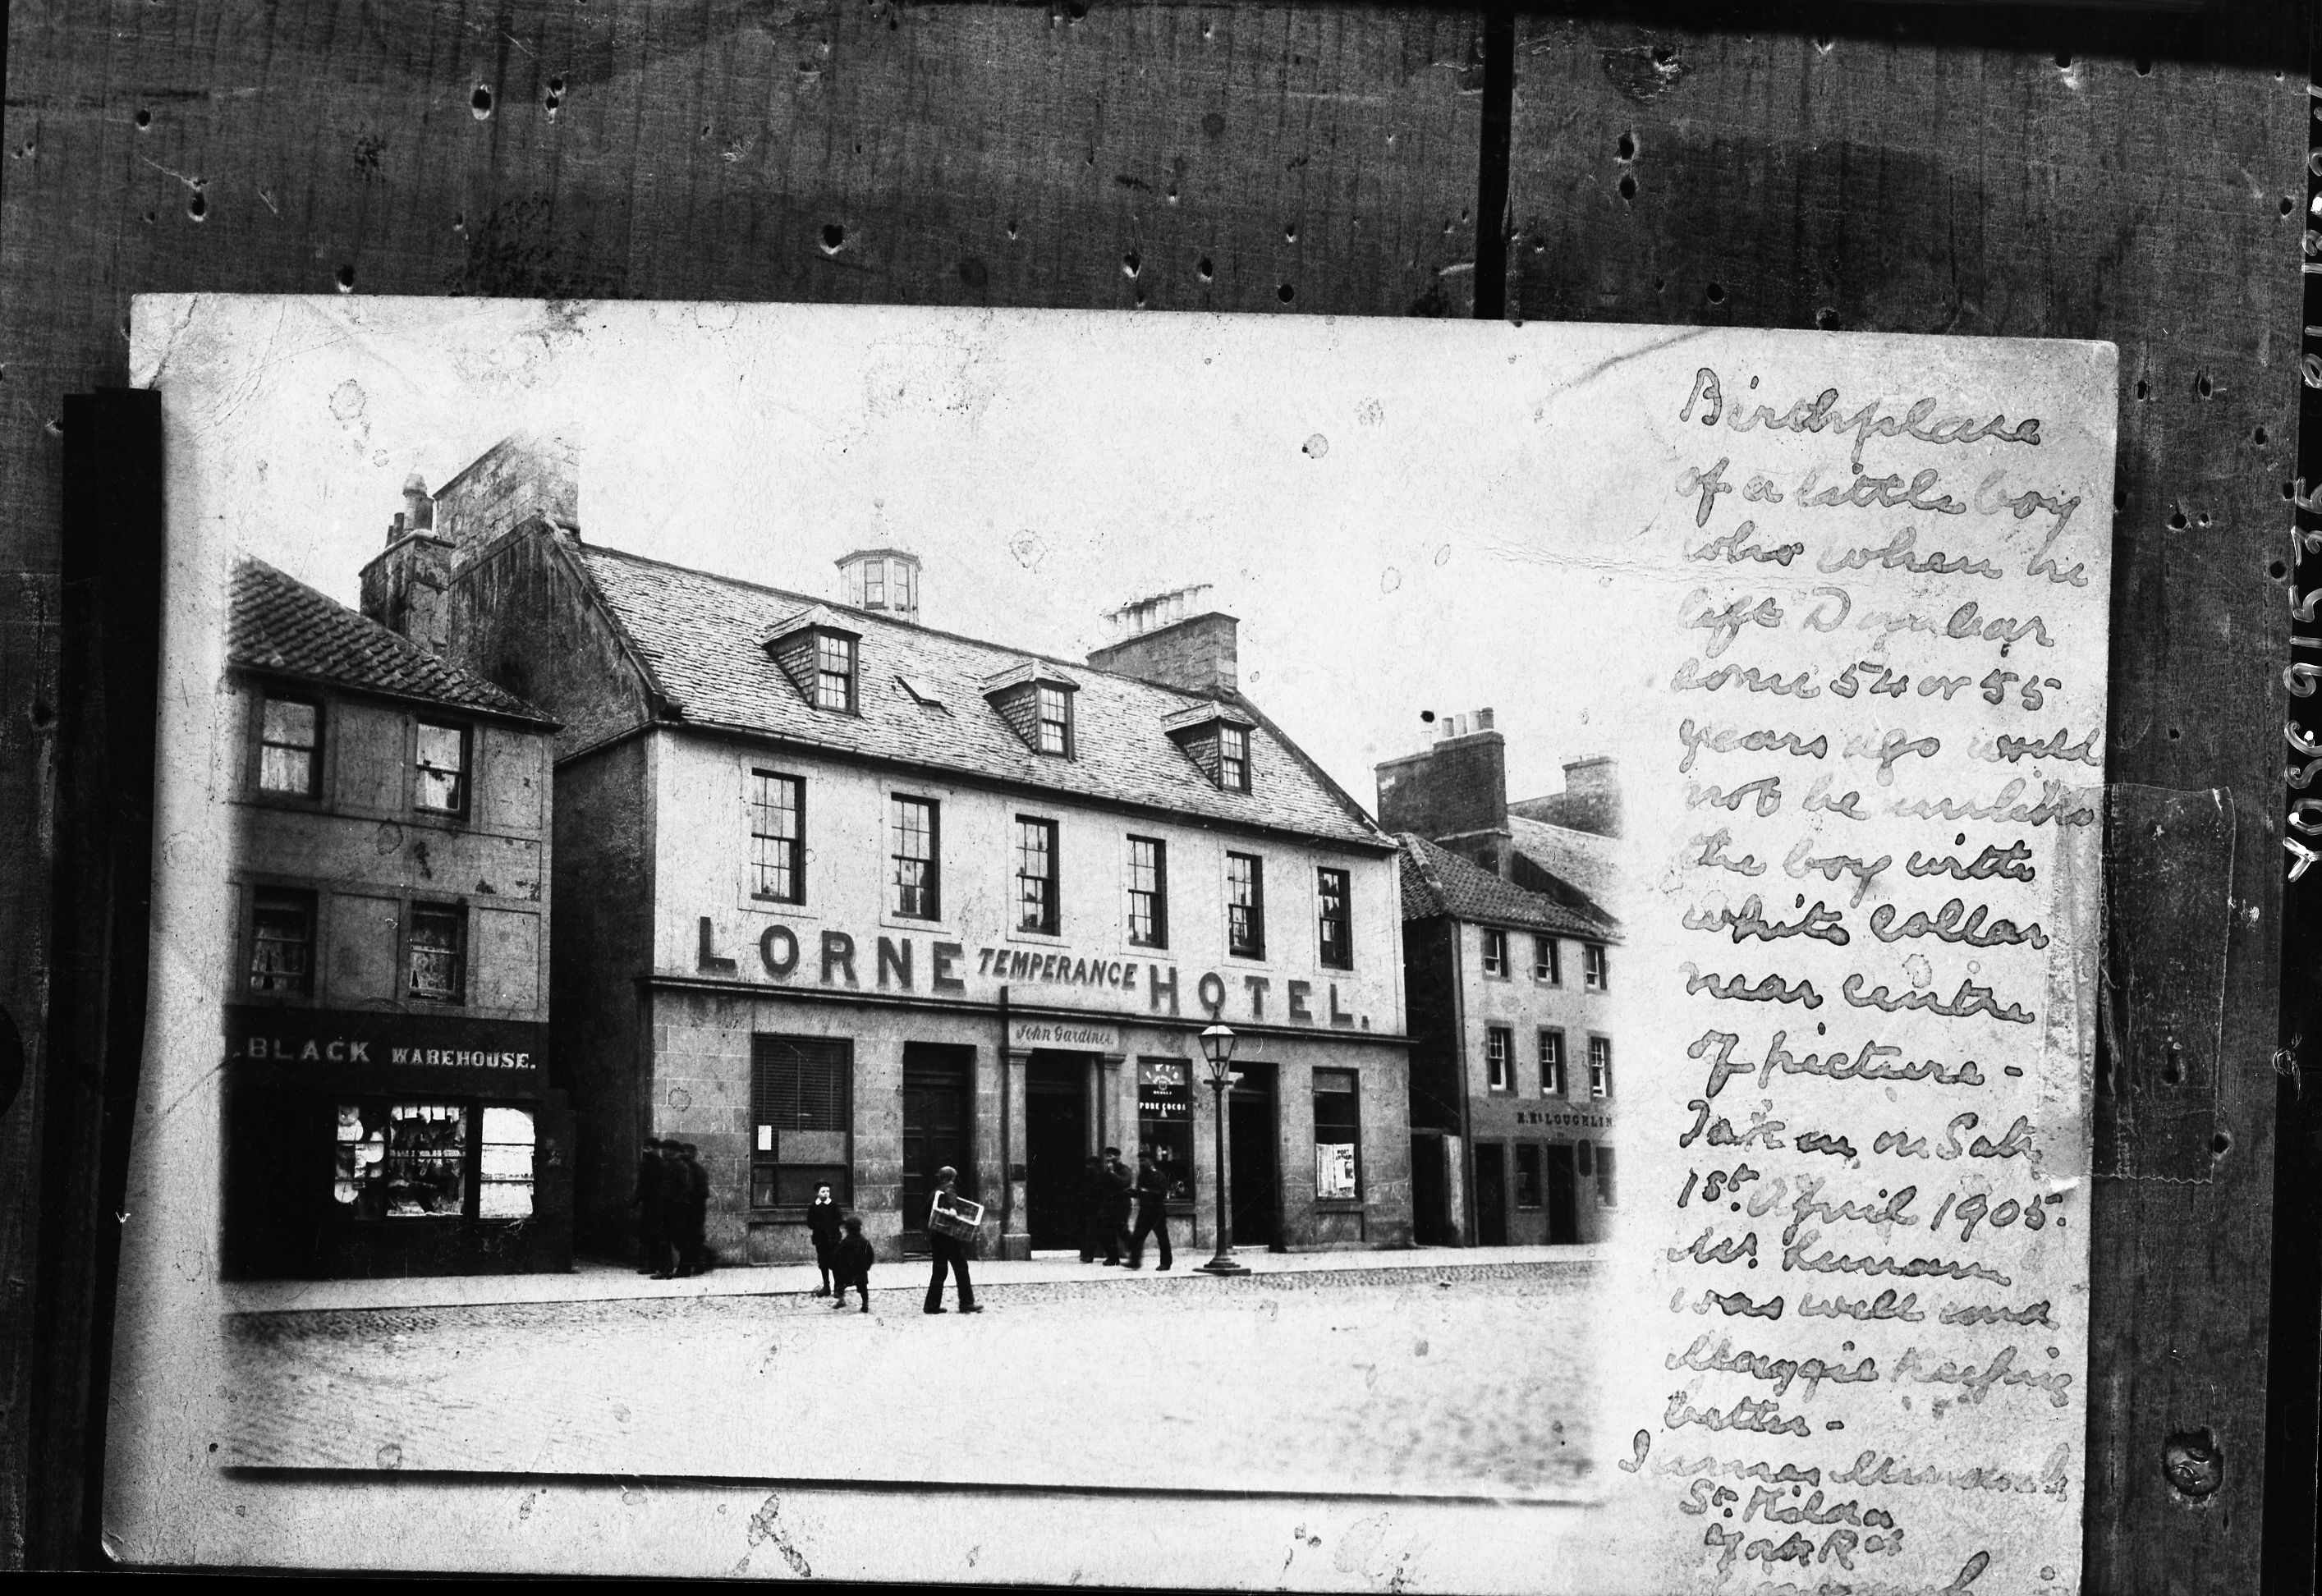 LORNE TEMPERANCE HOTEL.
John Gardiner
.BLACK WAREHOUSE.
PURE COCOA
McLOUGHLIN
Birthplace
of a little boy
who when he
left Dunbar
some 54 or 55
years ago would
not be unlike
the boy with
white collar
near centre
of picture -
Taken on Sat.
1st. April 1905.
Mr.
was well and
Maggie Keeping
better -
James
St. Kilda
York Rd